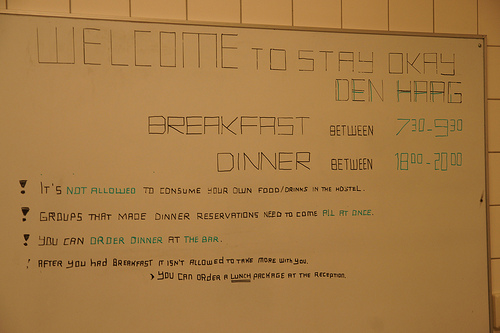 WELCOME TO STAY OKAY
DEN HAAG
BREAKFAST BETWEEN 7:30-9:30
DINNER BETWEEN 18:00-20:00
! IT'S NOT ALLOWED TO CONSUME YOUR OWN FOOD/DRINKS IN THE HOSTEL.
! GROUPS THAT MADE DINNER RESERVATIONS NEED TO COME ALL AT ONCE.
! YOU CAN ORDER DINNER AT THE BAR.
! AFTER YOU HAD BREAKFAST IT ISN'T ALLOWED TO TAKE MORE WITH YOU.
> YOU CAN ORDER A LUNCH PACKAGE AT THE RECEPTION.